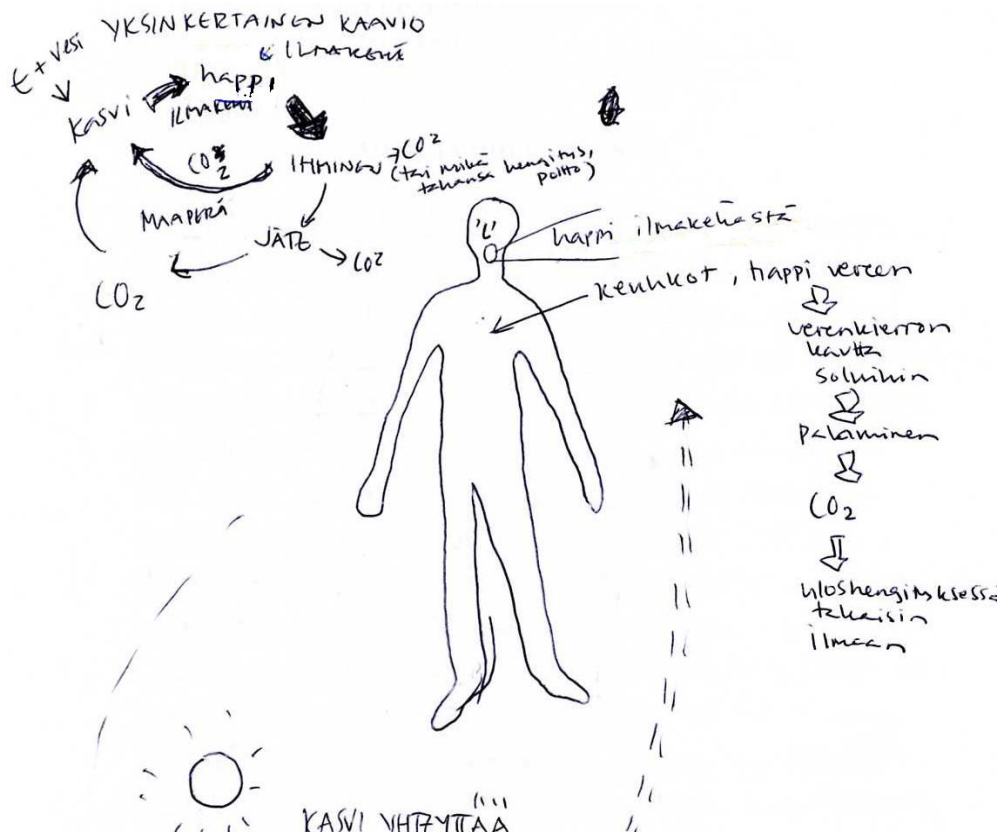 YKSINKERTAINEN KAAVIO
E + vesi
ILMAKEHÄ
happi
kasvi
ILMAKEHÄ
CO2
IHMINEN → CO2
(tai mikä
tahansa hengitys,
poltto)
MAAPERÄ
JÄTE
CO2
CO2
happi ilmakehästä
keuhkot, happi vereen
verenkierron
kautta
soluihin
palaminen
CO2
uloshengityksessä
takaisin
ilmaan
KASVI YHTEYTTÄÄ